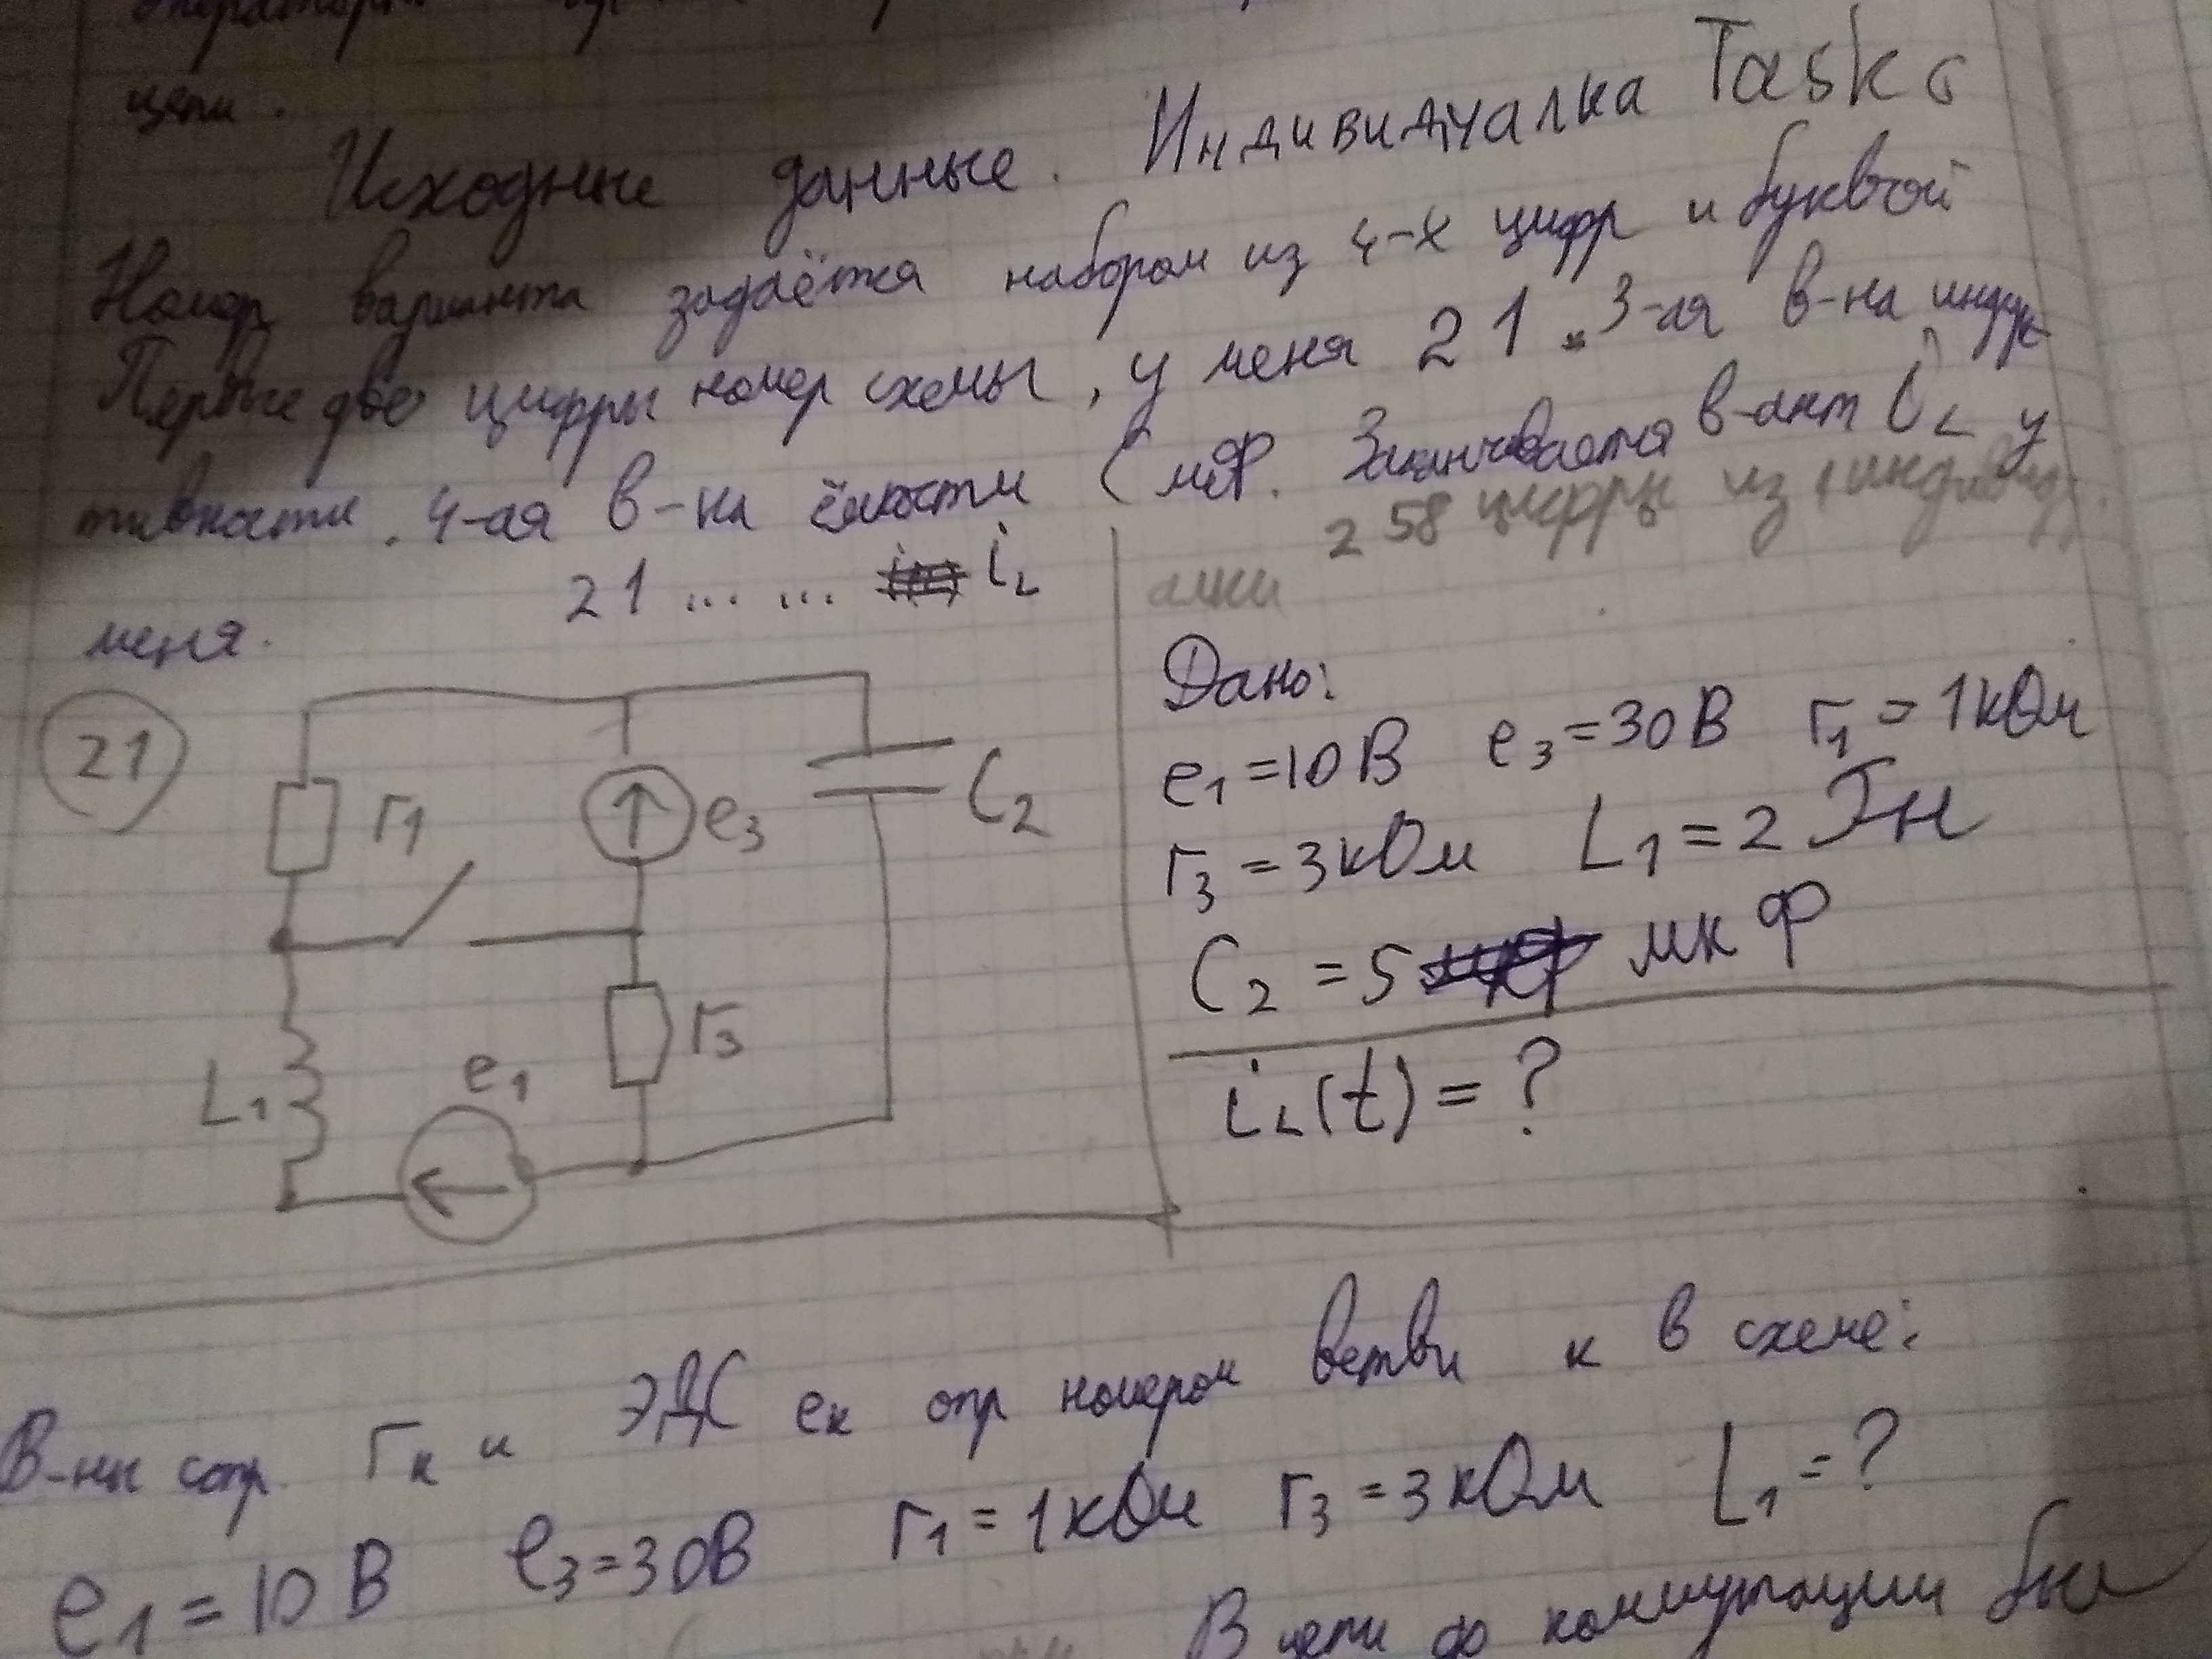 цепи.
Исходные данные. Индивидуалка Task 6
Номер варианта задаётся набором из 4-х цифр и буквой
Первые две цифры номер схемы, у меня 21. 3-ая в-на индук
тивности. 4-ая в-на ёмкости C мкФ. Заканчивается в-ант iL у
меня. 21 ... ... iL
258 цифры из 1 индивиду
алки
21
r1
e3
C2
L1
e1
r3
Дано:
e1=10В e3=30В r1=1кОм
r3=3кОм L1=2 Гн
C2=5 мкФ
iL(t)=?
В-ны сопр. rк и ЭДС eк опр номером ветви к в схеме:
e1=10В e3=30В r1=1кОм r3=3кОм L1=?
В цепи до коммутации был